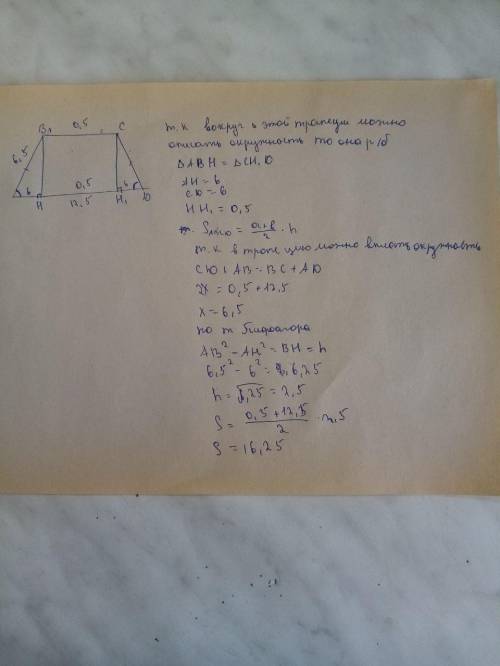 B 0,5 C
6,5
6 0,5 6
H H₁ D
12,5
т.к вокруг этой трапеции можно
описать окружность то она р/б
ΔABH = ΔCH₁D
AH = 6
HH₁ = 0,5
S = (a+b)/2 · h
т.к в трапецию можно вписать окружность
CD + AB = BC + AD
2x = 0,5 + 12,5
x = 6,5
по т Пифагора
AB² - AH² = BH = h
6,5² - 6² = 6,25
h = = 2,5
S = (0,5 + 12,5)/2 · 2,5
S = 16,25